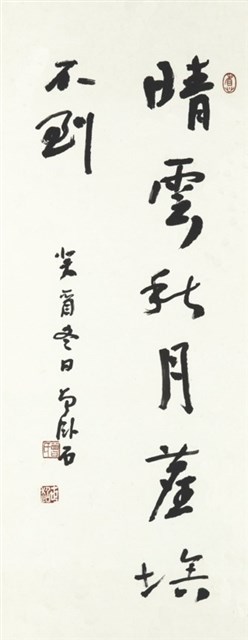 晴雲秋月塵埃
不到
癸酉冬日 臥石